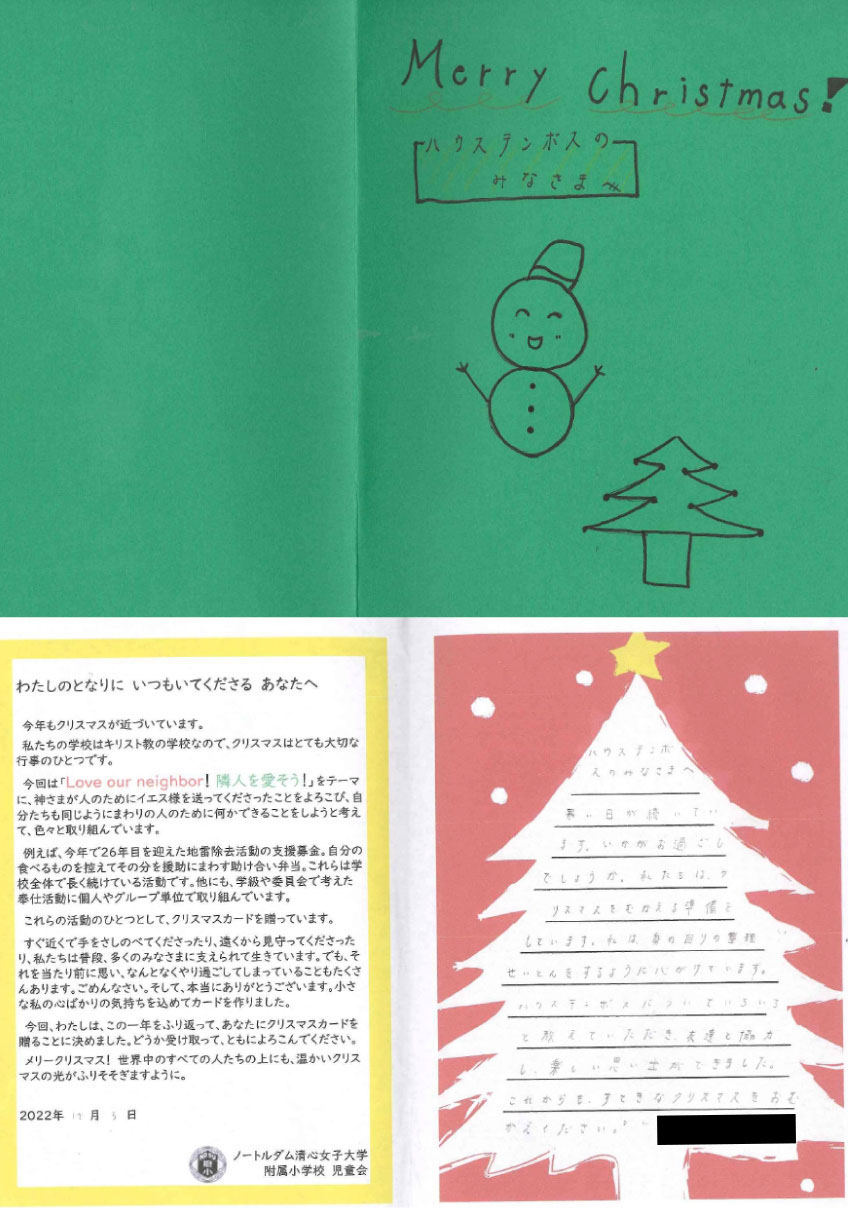 Merry Christmas!
ハウステンボスの
みなさまへ
わたしのとなりに いつもいてくださる あなたへ
今年もクリスマスが近づいています。
私たちの学校はキリスト教の学校なので、クリスマスはとても大切な
行事のひとつです。
今回は「Love our neighbor! 隣人を愛そう!」をテーマ
に、神さまが人のためにイエス様を送ってくださったことをよろこび、自
分たちも同じようにまわりの人のために何かできることをしようと考え
て、色々と取り組んでいます。
例えば、今年で26年目を迎えた地雷除去活動の支援募金。自分の
食べるものを控えてその分を援助にまわす助け合い弁当。これらは学
校全体で長く続けている活動です。他にも、学級や委員会で考えた
奉仕活動に個人やグループ単位で取り組んでいます。
これらの活動のひとつとして、クリスマスカードを贈っています。
すぐ近くで手をさしのべてくださったり、遠くから見守ってくださった
り、私たちは普段、多くのみなさまに支えられて生きています。でも、そ
れを当たり前に思い、なんとなくやり過ごしてしまっていることもたくさ
んあります。ごめんなさい。そして、本当にありがとうございます。小さ
な私の心ばかりの気持ちを込めてカードを作りました。
今回、わたしは、この一年をふり返って、あなたにクリスマスカードを
贈ることに決めました。どうか受け取って、ともによろこんでください。
メリークリスマス! 世界中のすべての人たちの上にも、温かいクリス
マスの光がふりそそぎますように。
2022年 月 日
ノートルダム清心女子大学
附属小学校 児童会
ハウステンボ
スのみなさまへ
寒い日が続いてい
ます。いかがお過ごし
でしょうか。私たちは、ク
リスマスをむかえる準備を
しています。私は、身の回りの整理
せいとんをするように心がけています。
ハウステンボスについていろいろ
と教えていただき、友達と協力
し、楽しい思い出ができました。
これからも、すてきなクリスマスをおむ
かえください。